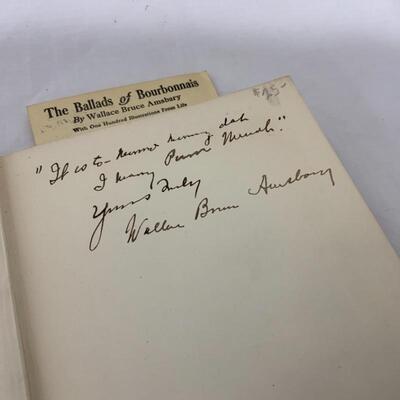 The Ballads of Bourbonnais
By Wallace Bruce Amsbary
With One Hundred Illustrations From Life
$25-
"It is to-morrow morning dat
I marry
Yours truly
Wallace Bruce Amsbary